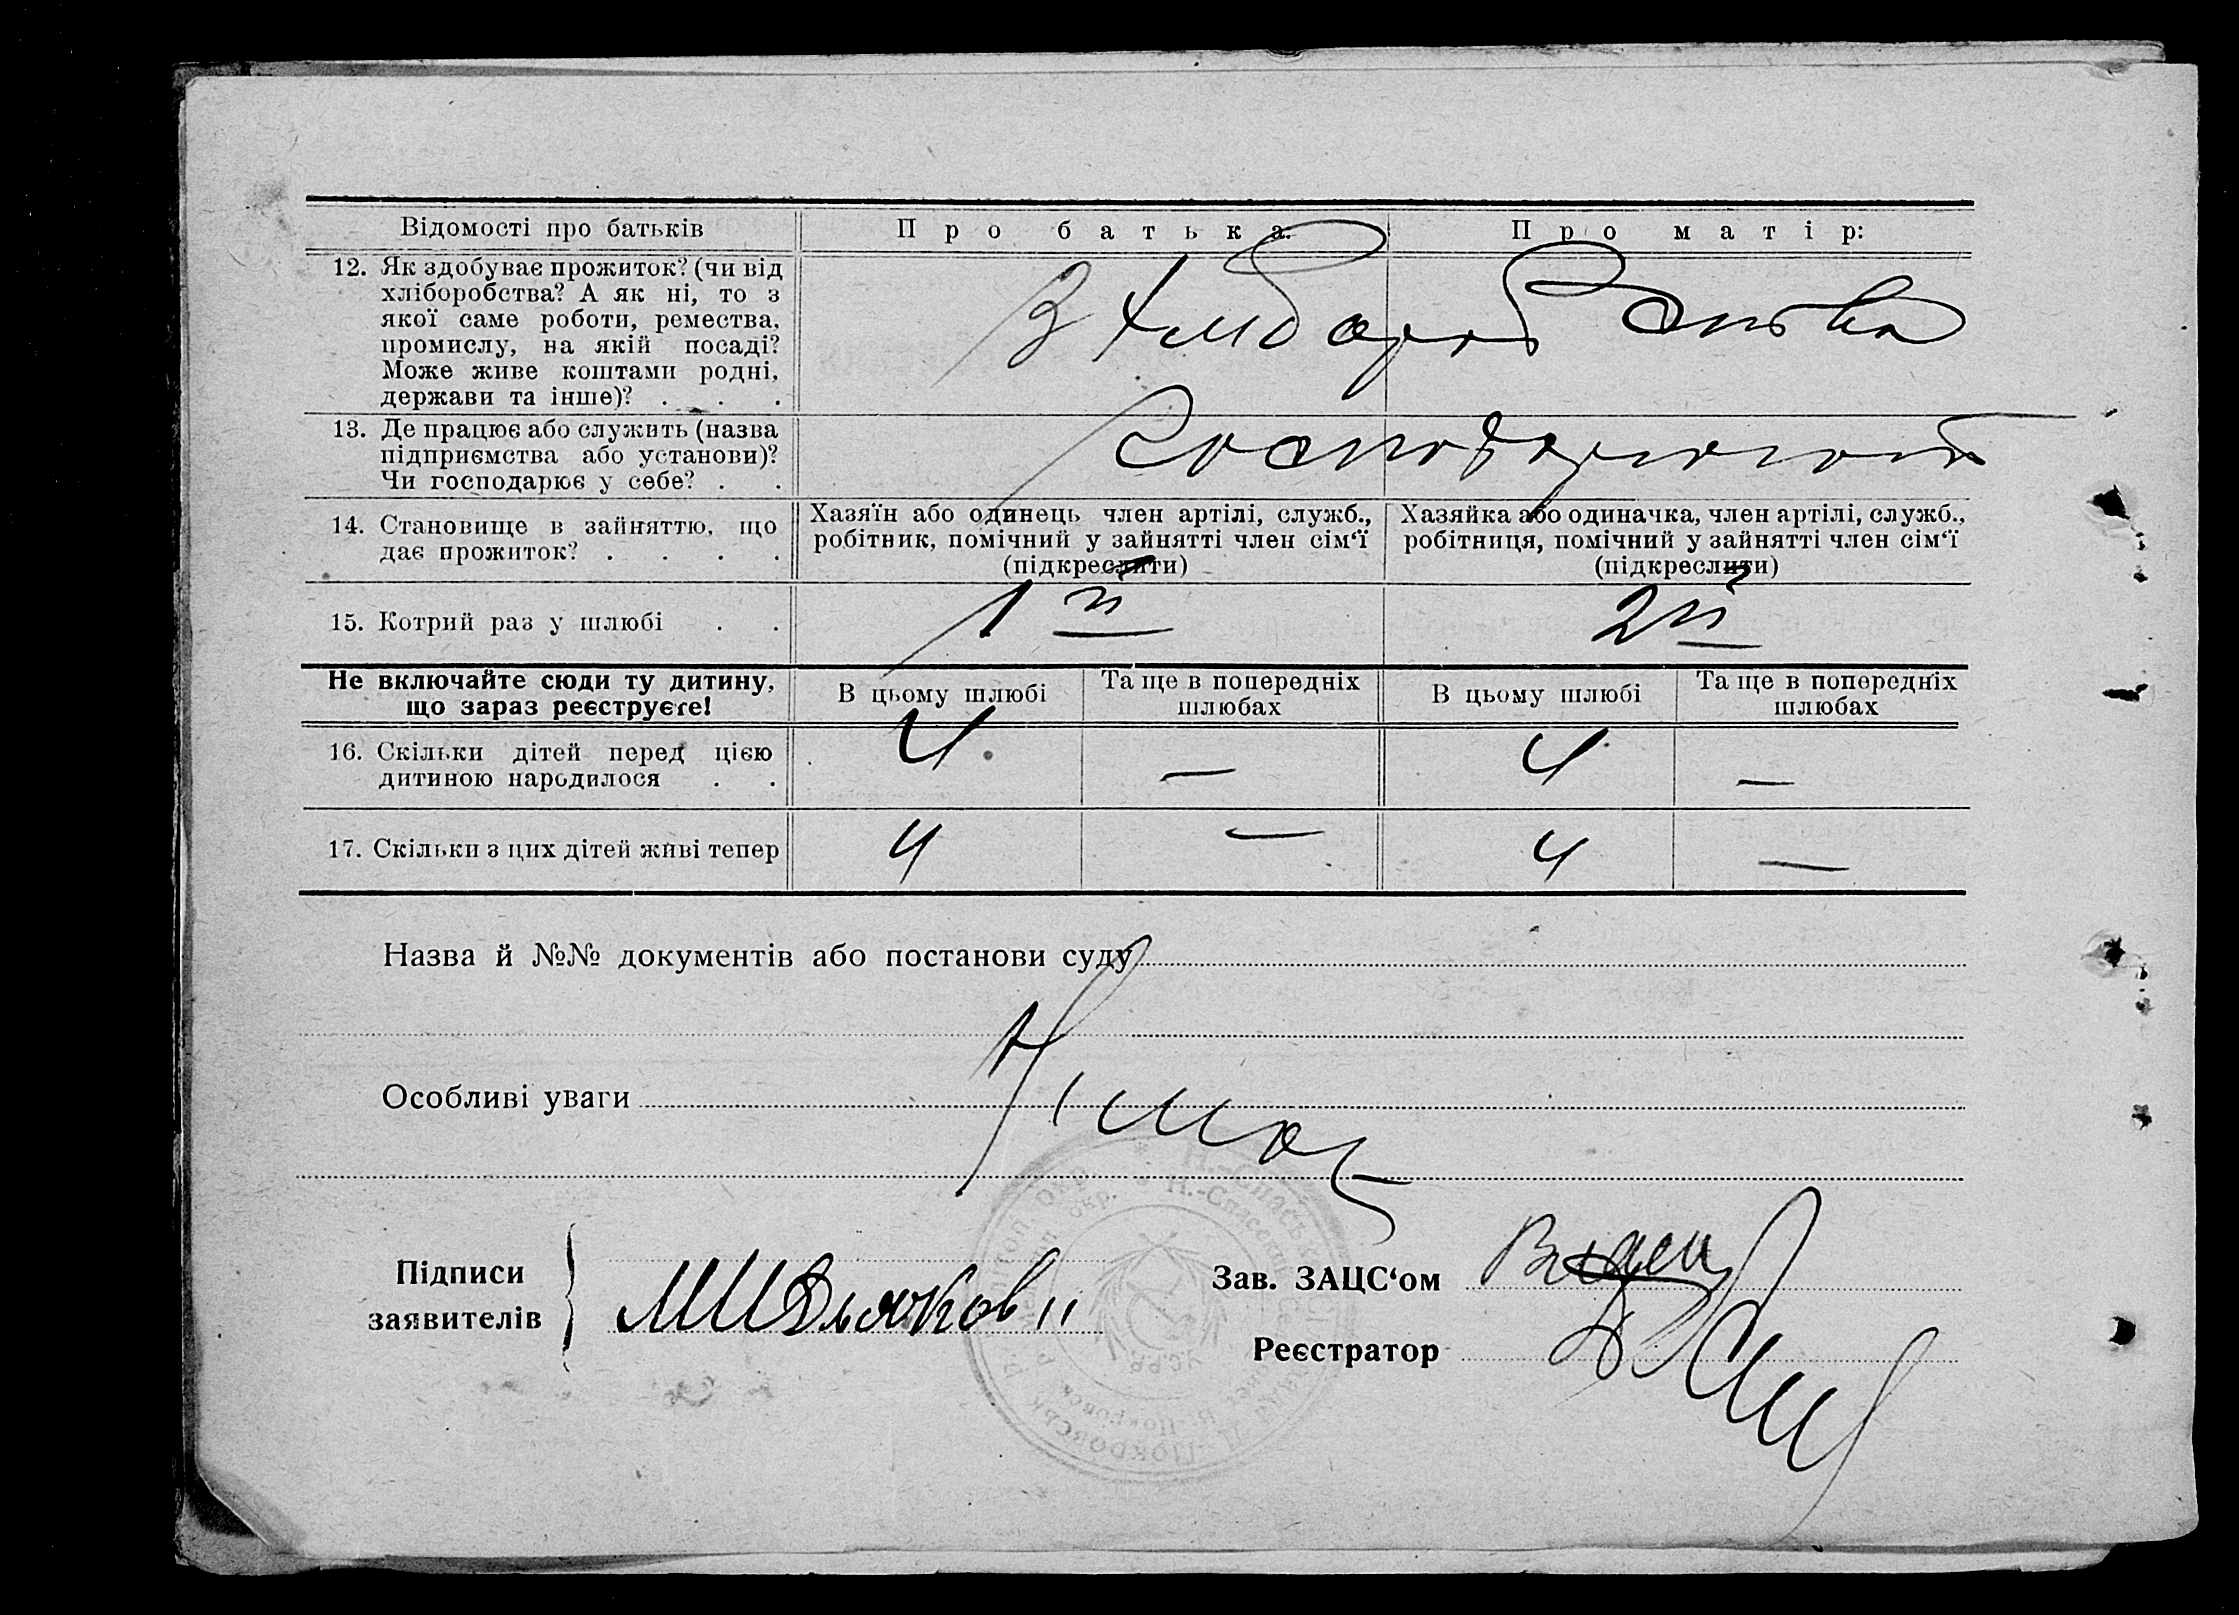 Відомості про батьків
Про батька:
Про матір:
12. Як здобуває прожиток? (чи від
хліборобства? А як ні, то з
якої саме роботи, ремества,
промислу, на якій посаді?
Може живе коштами родні,
держави та інше)? . . .
З хліборобства
13. Де працює або служить (назва
підприємства або установи)?
Чи господарює у себе? . .
14. Становище в зайняттю, що
дає прожиток? . . . .
Хазяїн або одинець член артілі, служб.,
робітник, помічний у зайнятті член сім‘ї
(підкреслити)
Хазяйка або одиначка, член артілі, служб.,
робітниця, помічний у зайнятті член сім‘ї
(підкреслити)
15. Котрий раз у шлюбі . .
1й
2й
Не включайте сюди ту дитину,
що зараз реєструєте!
В цьому шлюбі
Та ще в попередніх
шлюбах
В цьому шлюбі
Та ще в попередніх
шлюбах
16. Скільки дітей перед цією
дитиною народилося . .
4 — 4 —
17. Скільки з цих дітей живі тепер
4 — 4 —
Назва й №№ документів або постанови суду
Особливі уваги
Підписи
заявителів
Зав. ЗАЦС‘ом
Реєстратор